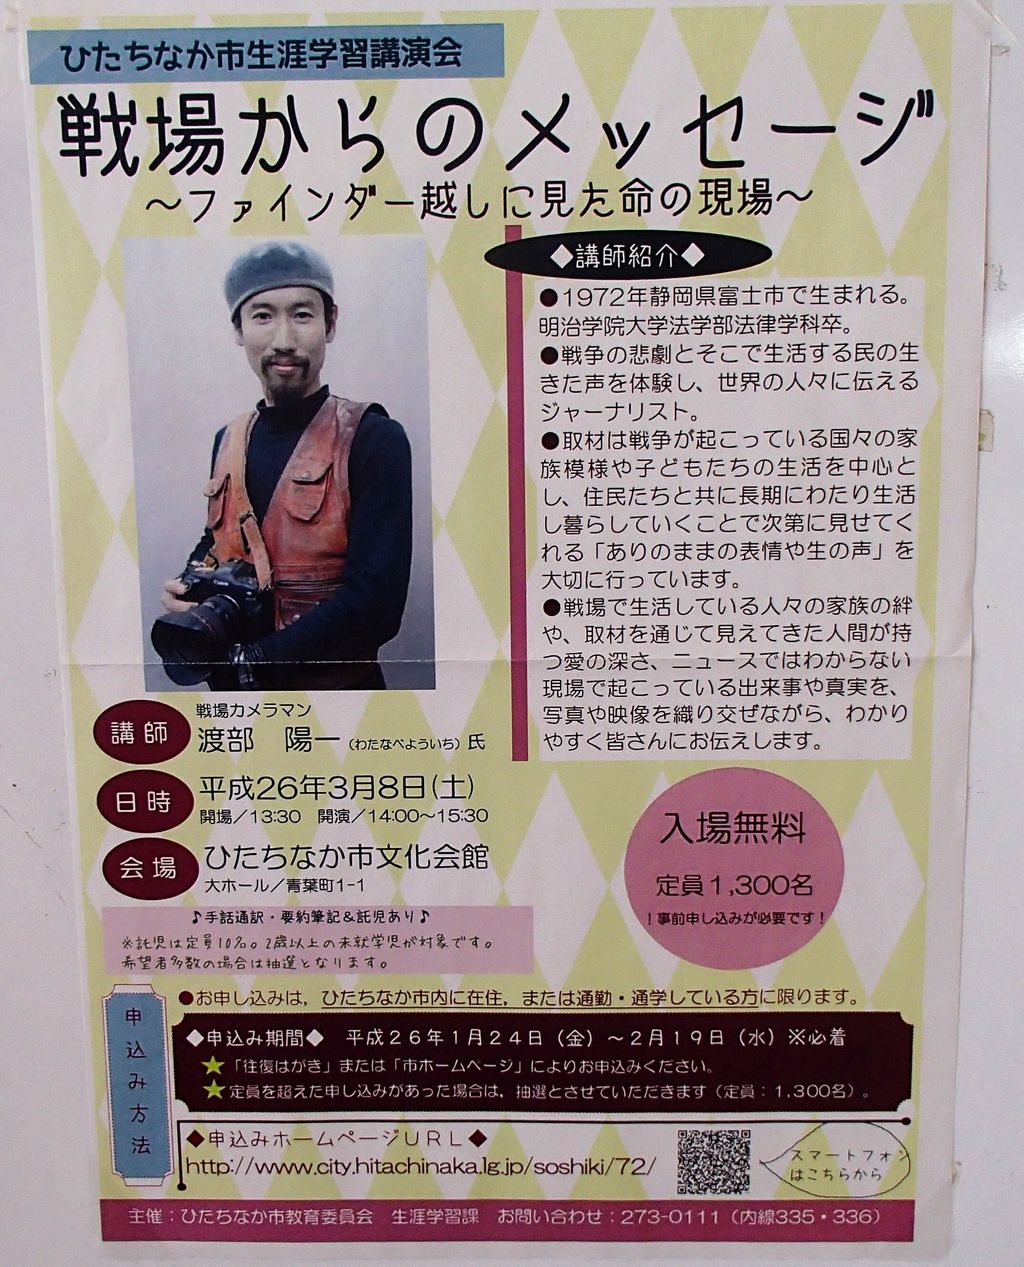 ひたちなか市生涯学習講演会
戦場からのメッセージ
～ファインダー越しに見た命の現場～
◆講師紹介◆
●1972年静岡県富士市で生まれる。
明治学院大学法学部法律学科卒。
●戦争の悲劇とそこで生活する民の生
きた声を体験し、世界の人々に伝える
ジャーナリスト。
●取材は戦争が起こっている国々の家
族模様や子どもたちの生活を中心と
し、住民たちと共に長期にわたり生活
し暮らしていくことで次第に見せてく
れる「ありのままの表情や生の声」を
大切に行っています。
●戦場で生活している人々の家族の絆
や、取材を通じて見えてきた人間が持
つ愛の深さ、ニュースではわからない
現場で起こっている出来事や真実を、
写真や映像を織り交ぜながら、わかり
やすく皆さんにお伝えします。
講師
戦場カメラマン
渡部 陽一(わたなべよういち)氏
日時
平成26年3月8日(土)
開場／13:30 開演／14:00～15:30
会場
ひたちなか市文化会館
大ホール／青葉町1-1
入場無料
定員1,300名
！事前申し込みが必要です！
♪手話通訳・要約筆記＆託児あり♪
※託児は定員10名。2歳以上の未就学児が対象です。
希望者多数の場合は抽選となります。
申込み方法
●お申し込みは，ひたちなか市内に在住，または通勤・通学している方に限ります。
◆申込み期間◆ 平成26年1月24日（金）～2月19日（水）※必着
★「往復はがき」または「市ホームページ」によりお申込みください。
★定員を超えた申し込みがあった場合は，抽選とさせていただきます（定員：1,300名）。
◆申込みホームページＵＲＬ◆
http://www.city.hitachinaka.lg.jp/soshiki/72/
スマートフォン
はこちらから
主催：ひたちなか市教育委員会 生涯学習課 お問い合わせ：273-0111（内線335・336）